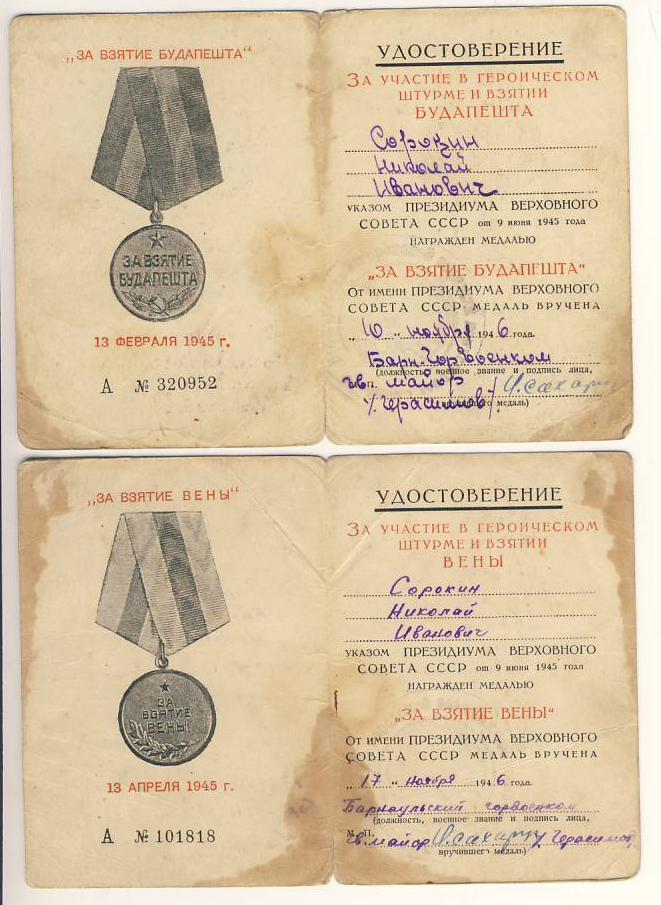 „ЗА ВЗЯТИЕ БУДАПЕШТА“
ЗА ВЗЯТИЕ
БУДАПЕШТА
13 ФЕВРАЛЯ 1945 г.
А № 320952
УДОСТОВЕРЕНИЕ
ЗА УЧАСТИЕ В ГЕРОИЧЕСКОМ
ШТУРМЕ И ВЗЯТИИ
БУДАПЕШТА
Сорокин
Николай
Иванович
УКАЗОМ ПРЕЗИДИУМА ВЕРХОВНОГО
СОВЕТА СССР от 9 июня 1945 года
НАГРАЖДЕН МЕДАЛЬЮ
„ЗА ВЗЯТИЕ БУДАПЕШТА“
От имени ПРЕЗИДИУМА ВЕРХОВНОГО
СОВЕТА СССР МЕДАЛЬ ВРУЧЕНА
„10“ ноября 1946 года.
Барн. Горвоенком
(должность, военное звание и подпись лица,
гв. майор
/Герасимов/
медаль)
„ЗА ВЗЯТИЕ ВЕНЫ“
ЗА
ВЗЯТИЕ
ВЕНЫ
13 АПРЕЛЯ 1945 г.
А № 101818
УДОСТОВЕРЕНИЕ
ЗА УЧАСТИЕ В ГЕРОИЧЕСКОМ
ШТУРМЕ И ВЗЯТИИ
ВЕНЫ
Сорокин
Николай
Иванович
УКАЗОМ ПРЕЗИДИУМА ВЕРХОВНОГО
СОВЕТА СССР от 9 июня 1945 года
НАГРАЖДЕН МЕДАЛЬЮ
„ЗА ВЗЯТИЕ ВЕНЫ“
От имени ПРЕЗИДИУМА ВЕРХОВНОГО
СОВЕТА СССР МЕДАЛЬ ВРУЧЕНА
„17“ ноября 1946 года.
Барнаульский горвоенком
(должность, военное звание и подпись лица,
М. П.
гв. майор /Герасимов
вручившего медаль)